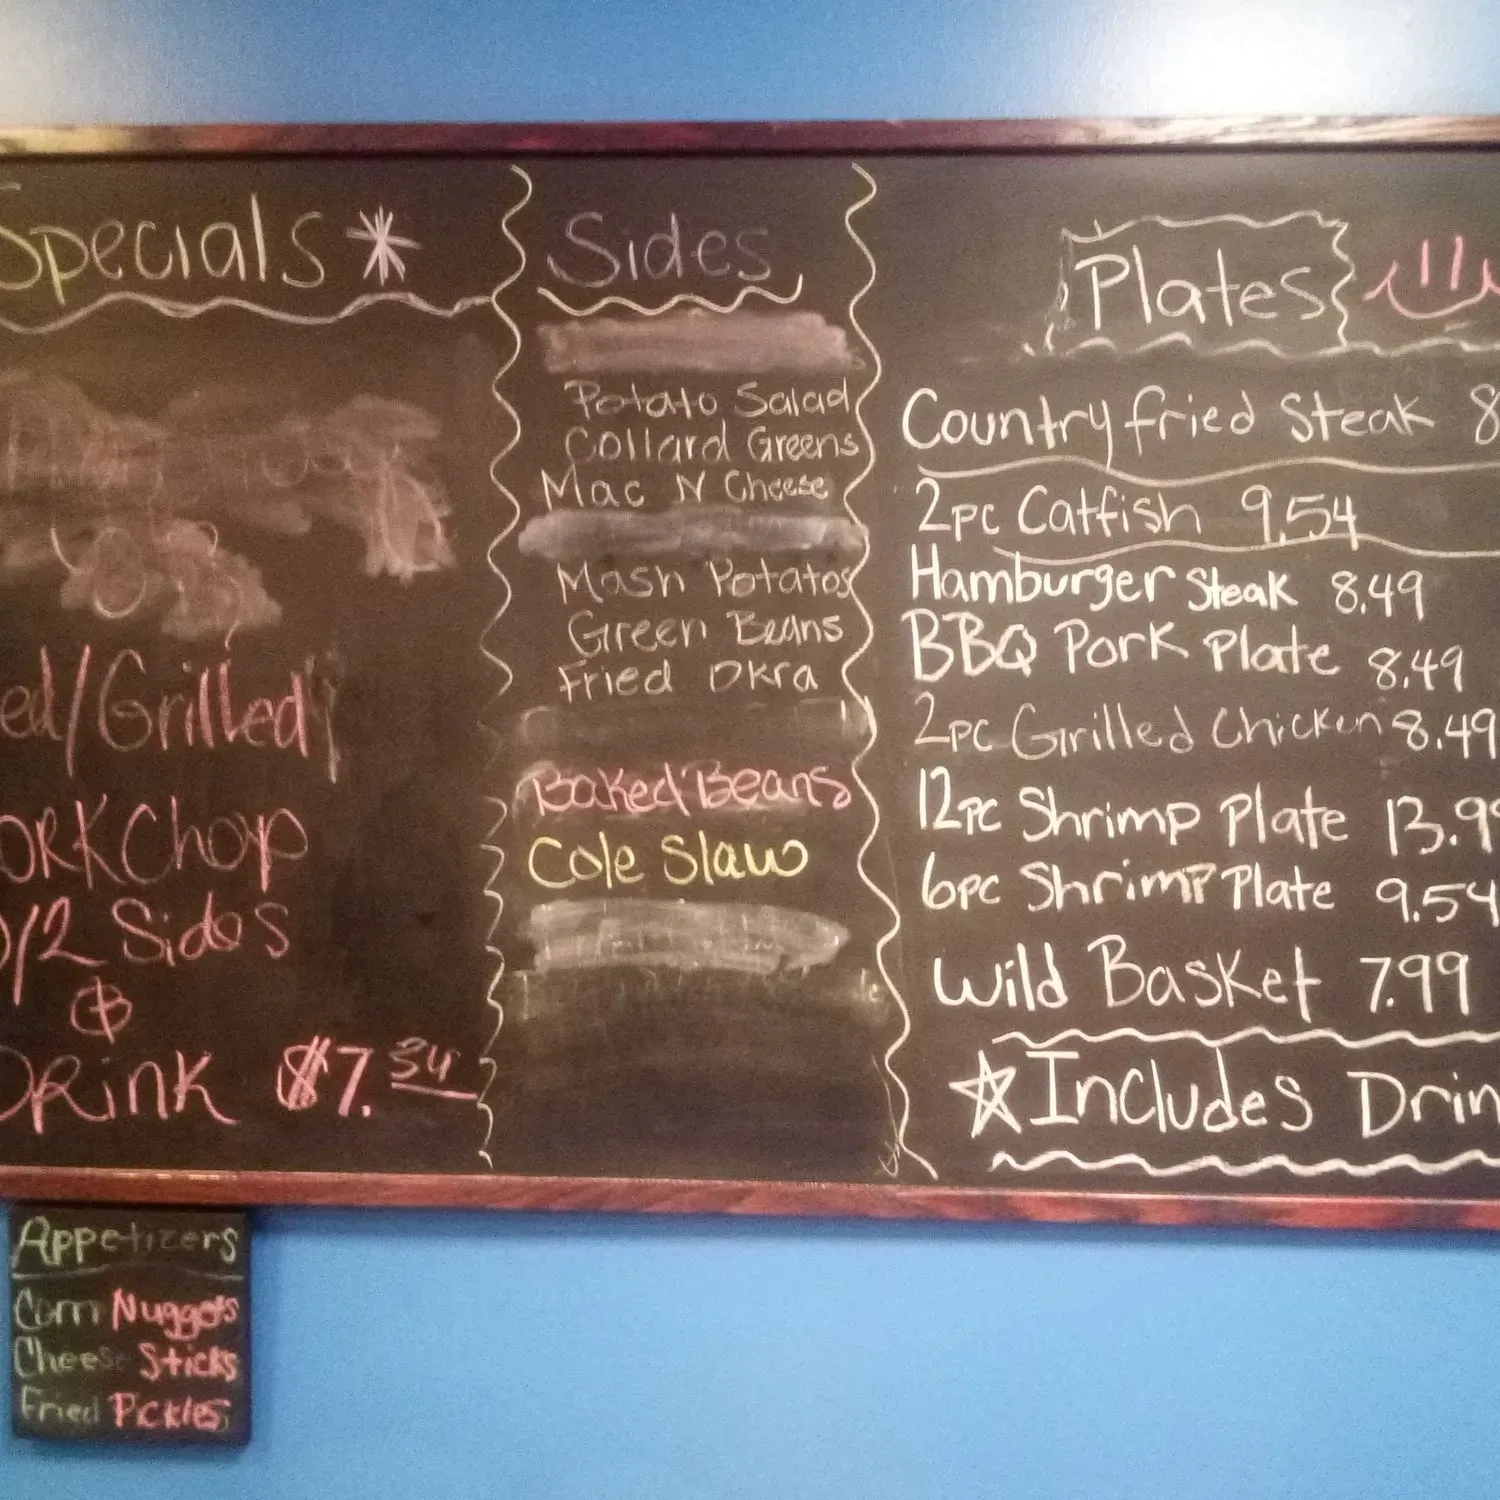 Specials *
ed/Grilled
ork Chop
w/2 Sides
&
Drink $7.34
Sides
Potato Salad
Collard Greens
Mac N Cheese
Mash Potatos
Green Beans
Fried Okra
Baked Beans
Cole Slaw
Plates
Country fried Steak 8
2pc Catfish 9.54
Hamburger Steak 8.49
BBQ Pork Plate 8.49
2pc Grilled Chicken 8.49
12pc Shrimp Plate 13.99
6pc Shrimp Plate 9.54
Wild Basket 7.99
Includes Drin
Appetizers
Corn Nuggets
Cheese Sticks
Fried Pickles